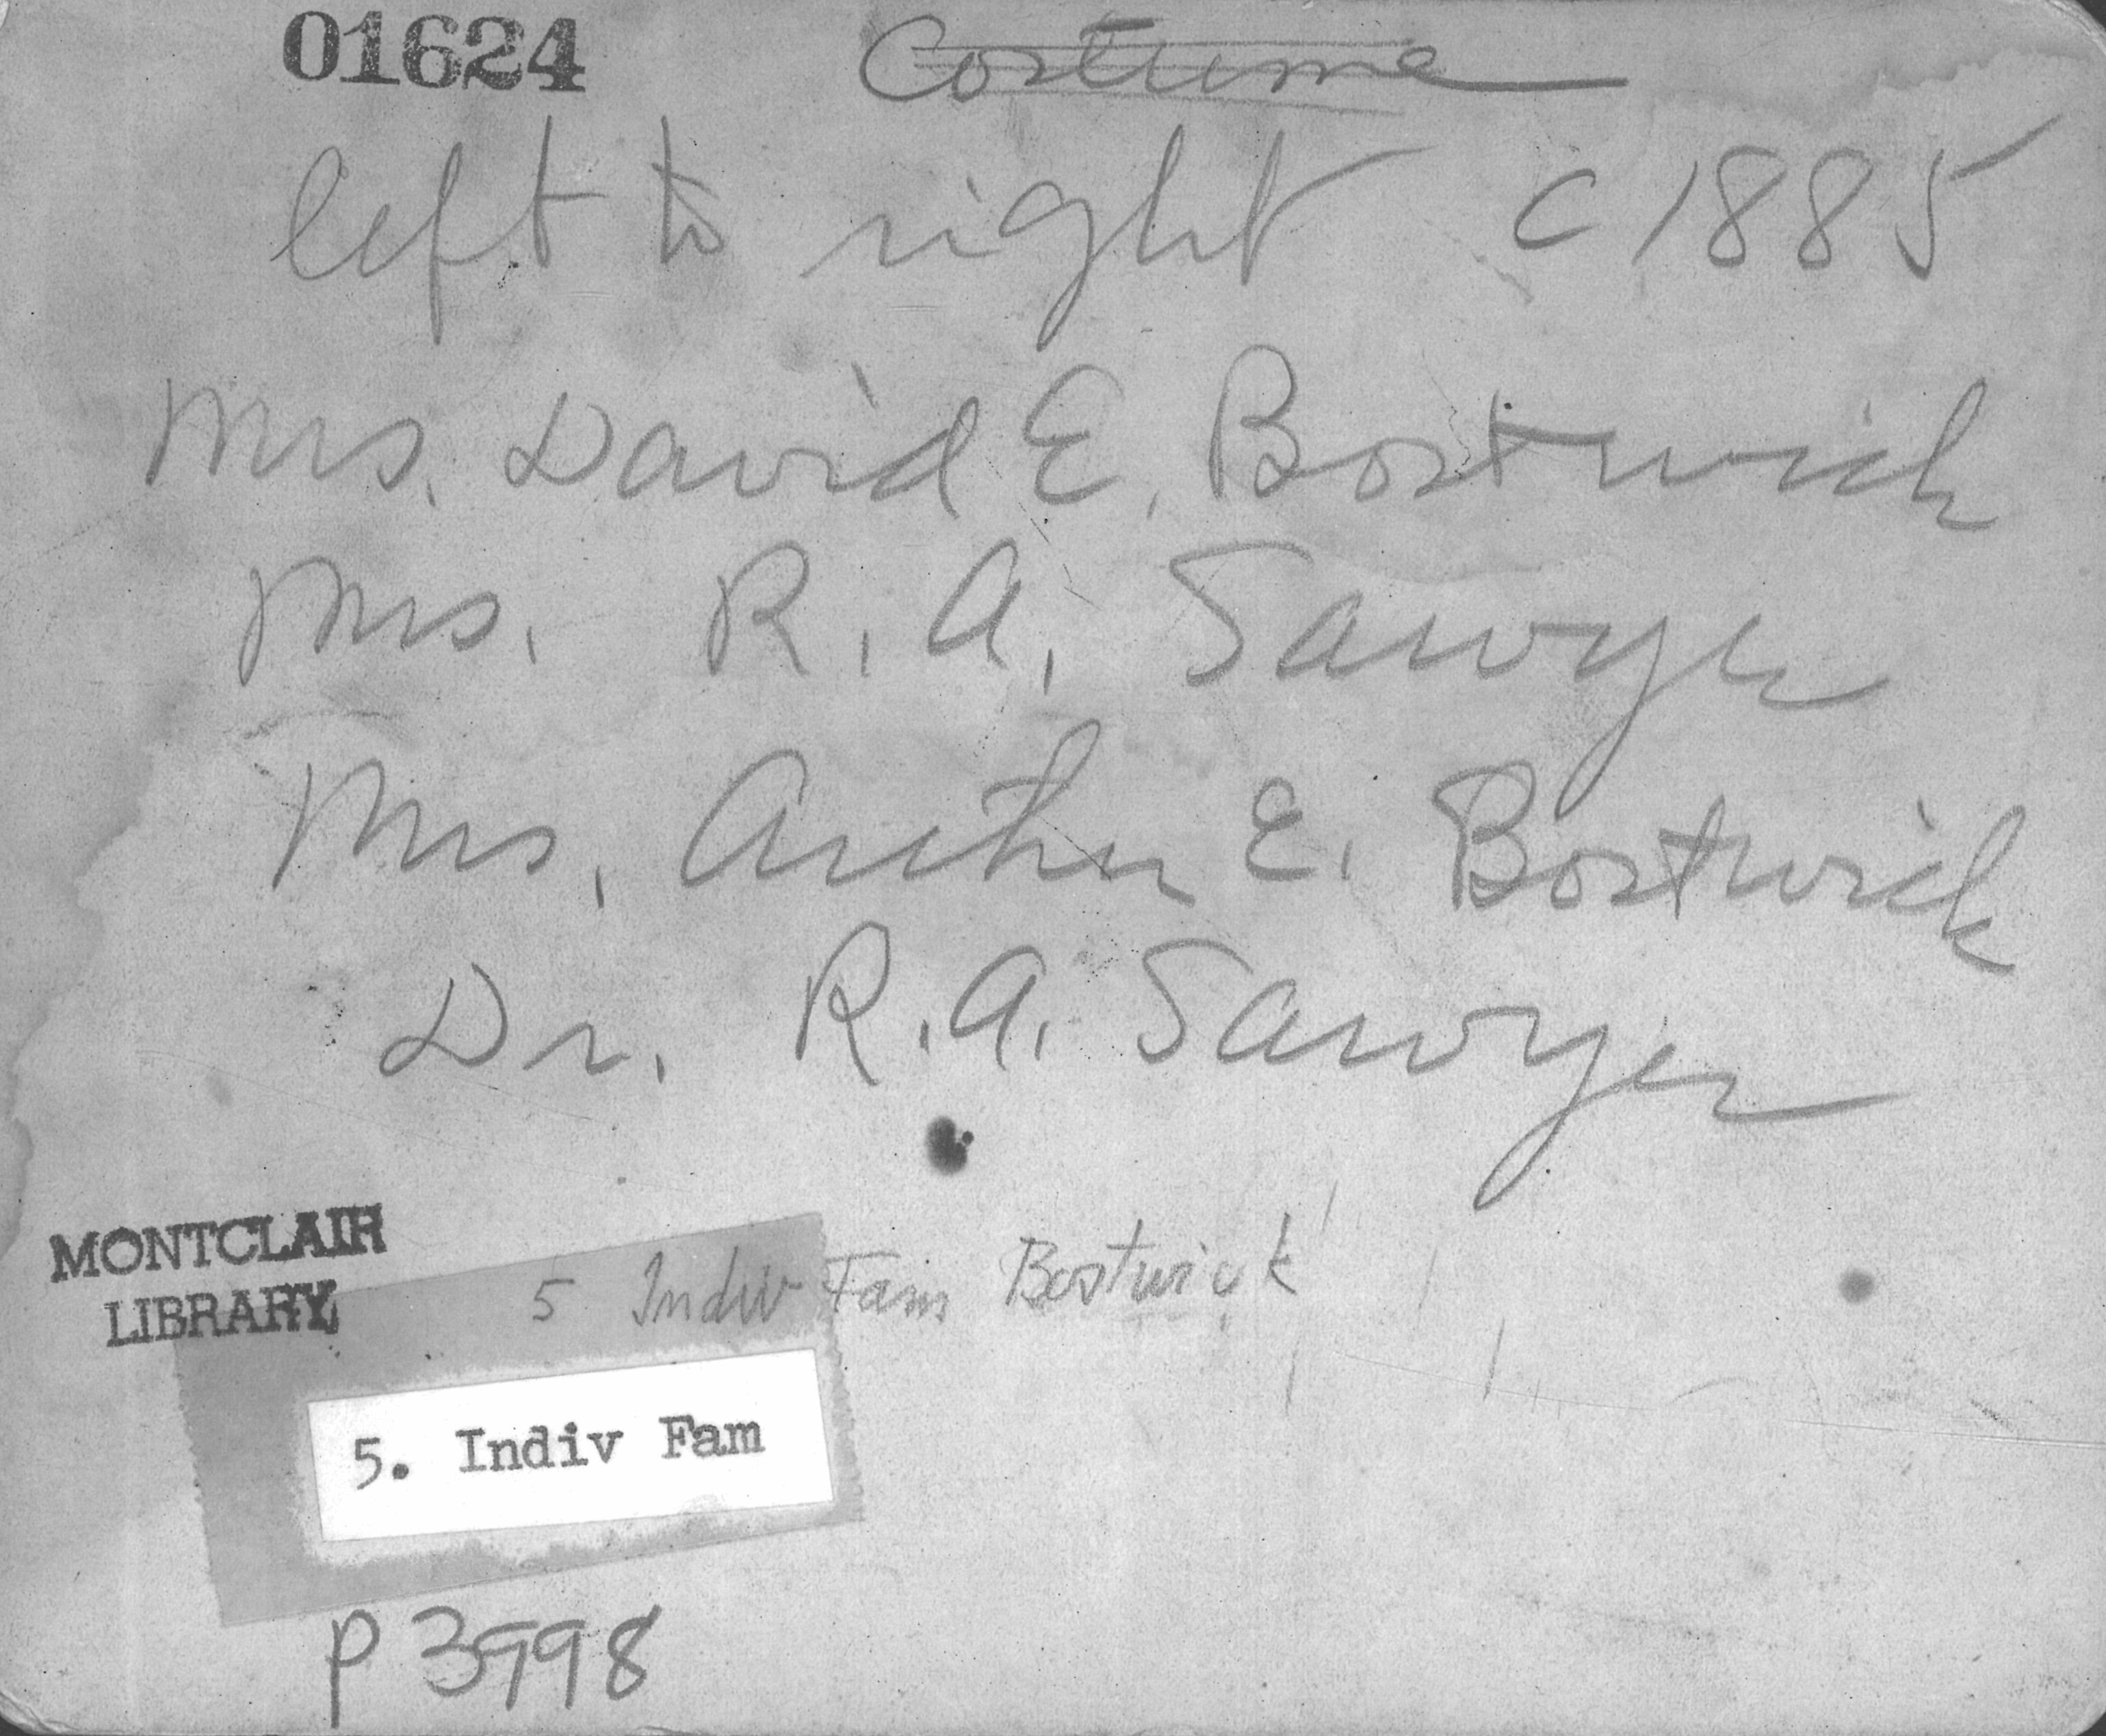 01624 Costume
left to right c 1885
Mrs. David E. Bostwick
Mrs. R. A. Sawyer
Mrs. Arthur E. Bostwick
Dr. R. A. Sawyer
MONTCLAIR
LIBRARY
5 Indiv Fam Bostwick
5. Indiv Fam
P 3998